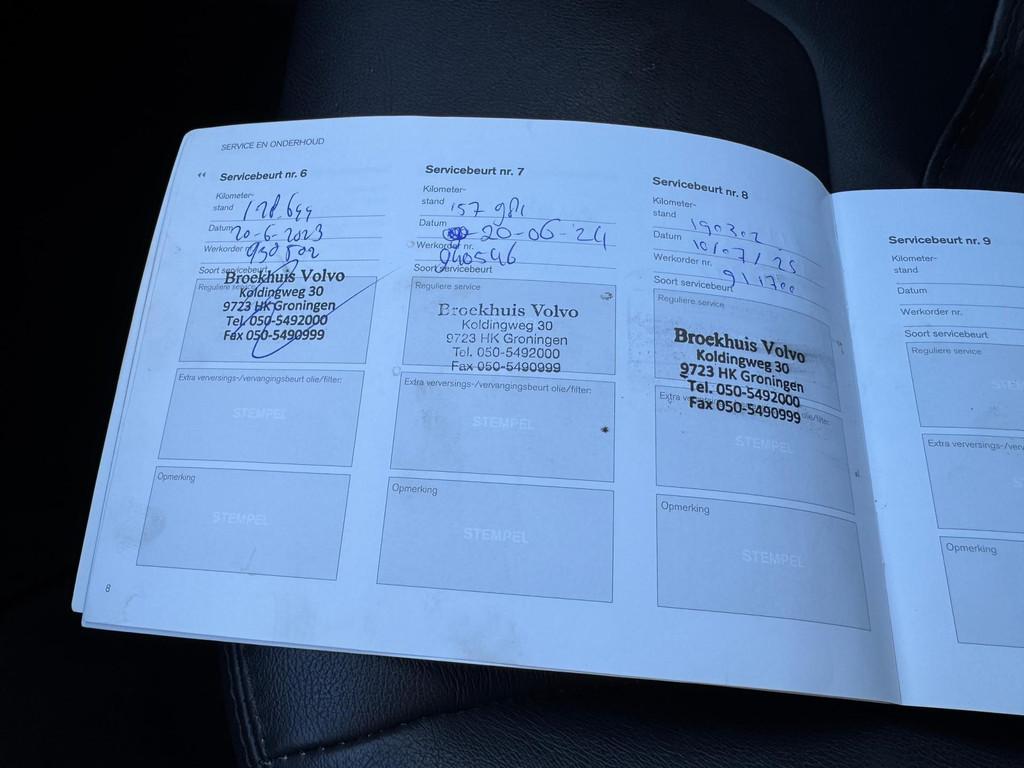 SERVICE EN ONDERHOUD
Servicebeurt nr. 6
Kilometer-
stand 128.699
Datum 20-6-2023
Werkorder
Soort servicebeurt
Reguliere service
Broekhuis Volvo
Koldingweg 30
9723 HK Groningen
Tel. 050-5492000
Fax 050-5490999
Extra verversings-/vervangingsbeurt olie/filter:
STEMPEL
Opmerking
STEMPEL
8
Servicebeurt nr. 7
Kilometer-
stand 157 981
Datum 20-06-24
Werkorder nr. 940546
Soort servicebeurt
Reguliere service
Broekhuis Volvo
Koldingweg 30
9723 HK Groningen
Tel. 050-5492000
Fax 050-5490999
Extra verversings-/vervangingsbeurt olie/filter:
STEMPEL
Opmerking
STEMPEL
Servicebeurt nr. 8
Kilometer-
stand 190302
Datum 10/07/25
Werkorder nr. 911700
Soort servicebeurt
Reguliere service
Broekhuis Volvo
Koldingweg 30
9723 HK Groningen
Tel. 050-5492000
Fax 050-5490999
Extra olie/filter:
STEMPEL
Opmerking
STEMPEL
Servicebeurt nr. 9
Kilometer-
stand
Datum
Werkorder nr.
Soort servicebeurt
Reguliere service
Extra verversings-/ver
Opmerking